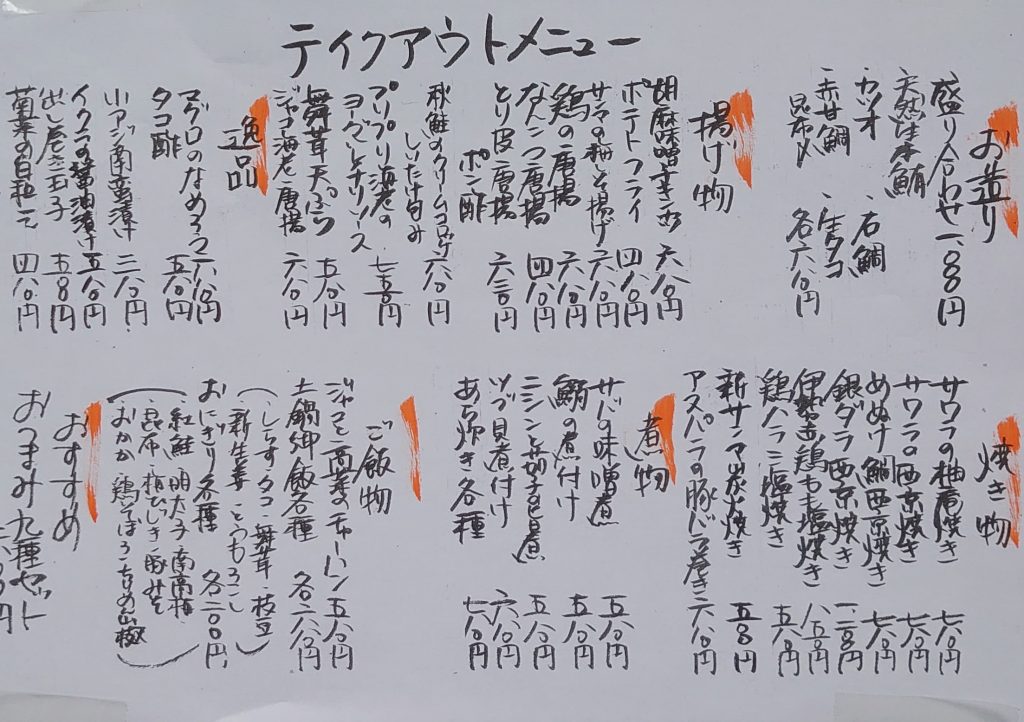 ティクアウトメニュー
お造り
盛り合わせ 一、八〇〇円
天然生本鮪
カツオ ・石鯛
赤甘鯛 ・生タコ
昆布〆 各六八〇円
揚げ物
六八〇円
ポテトフライ 四八〇円
サンマの柚しそ揚げ 六八〇円
鶏の唐揚 六八〇円
なんこつ唐揚 四八〇円
とり皮唐揚 六三〇円
ポン酢
秋鮭のクリームコロッケ 六八〇円
しいたけ包み
プリプリ海老の 七八〇円
ヨーグルトチリソース
舞茸天ぷら 五八〇円
ジャンボ海老唐揚 六八〇円
逸品
マグロのなめろう 六八〇円
タコ酢 五八〇円
小アジ南蛮漬け 三八〇円
イクラの醤油漬け 五八〇円
出し巻き玉子 五八〇円
菊菜の白和え 四八〇円
焼き物
サワラの柚庵焼き 七八〇円
サワラの西京焼き 七八〇円
めぬけ鯛西京焼き 七八〇円
銀ダラ西京焼き
伊勢赤鶏もも塩焼き 八五〇円
鶏ハラミ塩焼き 五八〇円
新サンマ炭火焼き 五八〇円
アスパラの豚バラ巻き 六八〇円
煮物
サバの味噌煮 五八〇円
鯛の煮付け 五八〇円
ニシンと茄子の煮 五八〇円
ツブ貝煮付け 六八〇円
あら炊き各種 七八〇円
ご飯物
ジャコと高菜のチャーハン 五八〇円
土鍋御飯各種 各六八〇円
(しらす タコ 舞茸 枝豆
新生姜 とうもろこし)
おにぎり各種 各二〇〇円
(紅鮭 明太子 南高梅
昆布 梅ひじき 豚みそ
おかか 鶏そぼろ ちりめん山椒)
おすすめ
おつまみ九種セット